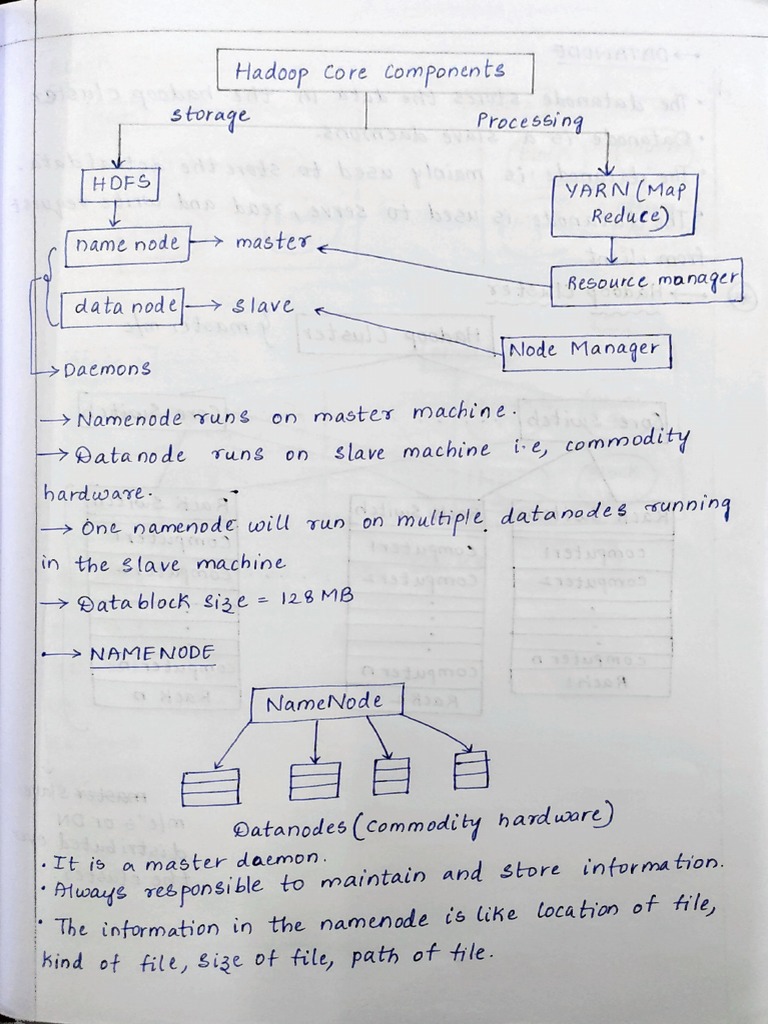 Hadoop Core Components
Storage
Processing
HDFS
YARN (Map
Reduce)
name node → master
Resource manager
data node → slave
Node Manager
→ Daemons
→ Namenode runs on master machine.
→ Datanode runs on slave machine i.e, commodity
hardware.
→ One namenode will run on multiple datanodes running
in the slave machine
→ Datablock size = 128 MB
→ NAMENODE
NameNode
Datanodes (commodity hardware)
• It is a master daemon.
• Always responsible to maintain and store information.
• The information in the namenode is like location of file,
kind of file, size of file, path of file.